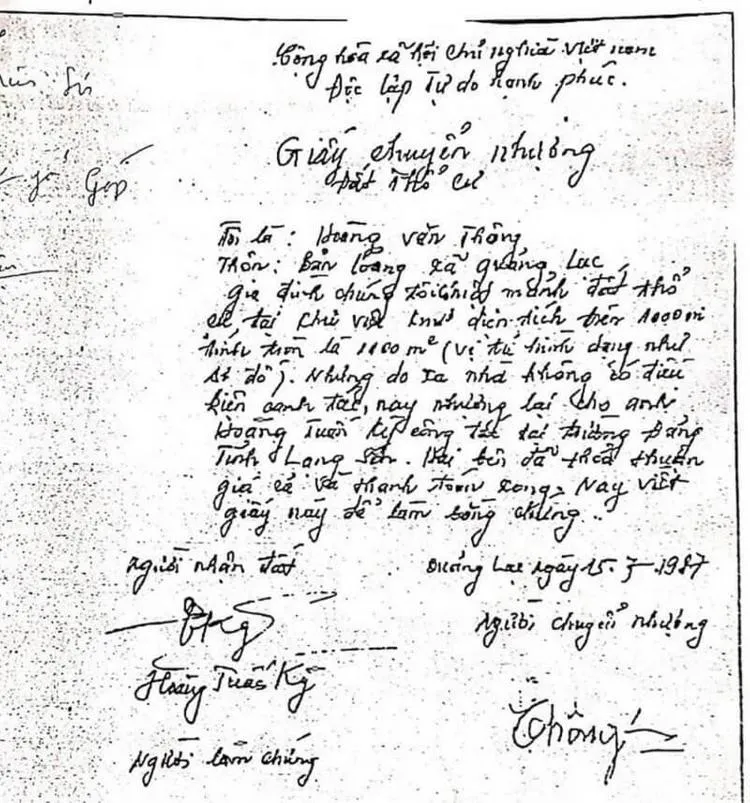 Cộng hòa xã hội chủ nghĩa Việt nam
Độc lập Tự do hạnh phúc.
Giấy chuyển nhượng
Đất Thổ Cư
Tôi là : Hoàng Văn Thông
Thôn : Bản Loỏng xã Quảng Lạc
gia đình chúng tôi có mảnh đất thổ
cư, tại khu diện tích trên 1000m
tính tròn là 1100 m² (Vị trí hình dạng như
sơ đồ). Nhưng do xa nhà không có điều
kiện canh tác, nay nhượng lại cho anh
Hoàng Tuấn Kỳ công tác tại trường Đảng
Tỉnh Lạng Sơn. Hai bên đã thoả thuận
giá cả và thanh toán xong, Nay viết
giấy này để làm bằng chứng..
Người nhận đất
Quảng Lạc ngày 15-7-1987
Người chuyển nhượng
Hoàng Tuấn Kỳ
Thông
Người làm chứng